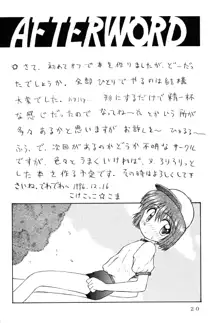 AFTERWORD
☆さて、初めてオフで本を作りましたが、どーだっ
たでしょうか。全部ひとりでやるのは結構
大変でした。ハァハァ 形にするだけで精一杯
な感じだったので なってねートという所が
多々あるかと思いますがお許しを〜ひょろろ〜
ふう。で、次回があるのかどうか不明なサークル
ですが、色々とうまくいければ、又ろりろりっと
した本を作る予定です。その時はよろしくして下
さいね。でわでわ〜 1996.12.16
こけこっこ☆ごま
20